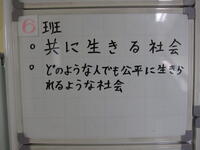 6 班
○ 共に生きる社会
○ どのような人でも公平に生きら
れるような社会